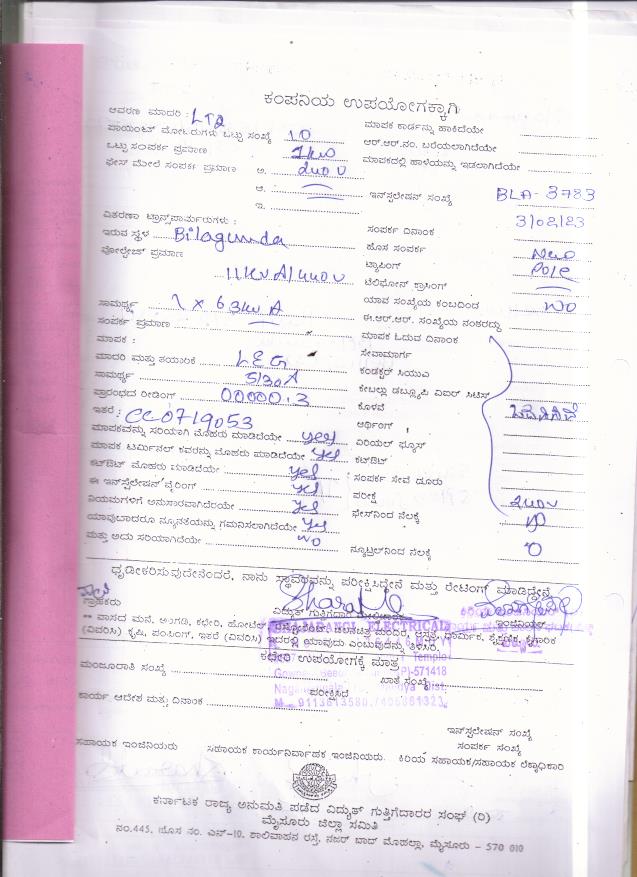 ಕಂಪನಿಯ ಉಪಯೋಗಕ್ಕಾಗಿ
ಆವರಣ ಮಾದರಿ : LT2 ಮಾಪಕ ಕಾರ್ಡನ್ನು ಹಾಕಿದೆಯೇ
ಪಾಯಿಂಟ್ ಮೋಟರುಗಳು ಒಟ್ಟು ಸಂಖ್ಯೆ 10 ಆರ್.ಆರ್.ನಂ. ಬರೆಯಲಾಗಿದೆಯೇ
ಒಟ್ಟು ಸಂಪರ್ಕ ಪ್ರಮಾಣ 1kw ಮಾಪಕದಲ್ಲಿ ಹಾಳೆಯನ್ನು ಇಡಲಾಗಿದೆಯೇ
ಫೇಸ್ ಮೇಲೆ ಸಂಪರ್ಕ ಪ್ರಮಾಣ ಅ. 240 V
ಆ. ಇನ್‌ಸ್ಟಲೇಷನ್ ಸಂಖ್ಯೆ BLA-3783
ಇ.
ವಿತರಣಾ ಟ್ರಾನ್ಸ್‌ಫಾರ್ಮರುಗಳು : ಸಂಪರ್ಕ ದಿನಾಂಕ 3/02/23
ಇರುವ ಸ್ಥಳ Bilagunda ಹೊಸ ಸಂಪರ್ಕ New
ವೋಲ್ಟೇಜ್ ಪ್ರಮಾಣ ಟ್ಯಾಪಿಂಗ್ Pole
11kv A/440V ಟೆಲಿಫೋನ್ ಕ್ರಾಸಿಂಗ್
ಸಾಮರ್ಥ್ಯ 1 x 63kv A ಯಾವ ಸಂಖ್ಯೆಯ ಕಂಬದಿಂದ NO
ಸಂಪರ್ಕ ಪ್ರಮಾಣ ಈ.ಆರ್.ಆರ್. ಸಂಖ್ಯೆಯ ನಂತರದ್ದು
ಮಾಪಕ : ಮಾಪಕ ಓದುವ ದಿನಾಂಕ
ಮಾದರಿ ಮತ್ತು ತಯಾರಿಕೆ L&G ಸೇವಾಮಾರ್ಗ
ಸಾಮರ್ಥ್ಯ 5/30A ಕಂಡಕ್ಟರ್ ಸಿಯುವಿ
ಪ್ರಾರಂಭದ ರೀಡಿಂಗ್ 00000.3 ಕೇಬಲ್ಲು ಡಬ್ಲ್ಯೂಪಿ ವಿಐಆರ್ ಸಿಟಿಸ್
ಇತರೆ : CC0719053 ಕೊಳವೆ
ಮಾಪಕವನ್ನು ಸರಿಯಾಗಿ ಮೊಹರು ಮಾಡಿದೆಯೇ yes ಆರ್ಥಿಂಗ್
ಮಾಪಕ ಟರ್ಮಿನಲ್ ಕವರನ್ನು ಮೊಹರು ಮಾಡಿದೆಯೇ yes ಏರಿಯಲ್ ಫ್ಯೂಸ್
ಕಟ್‌ಔಟ್ ಮೊಹರು ಮಾಡಿದೆಯೇ yes ಕಟ್‌ಔಟ್
ಈ ಇನ್‌ಸ್ಟಲೇಷನ್ ವೈರಿಂಗ್ yes ಸಂಪರ್ಕ ಸೇವೆ ದೂರು
ನಿಯಮಗಳಿಗೆ ಅನುಸಾರವಾಗಿದೆಯೇ yes ಪರೀಕ್ಷೆ 240V
ಯಾವುದಾದರೂ ನ್ಯೂನತೆಯನ್ನು ಗಮನಿಸಲಾಗಿದೆಯೇ yes ಫೇಸ್‌ನಿಂದ ನೆಲಕ್ಕೆ
ಮತ್ತು ಅದು ಸರಿಯಾಗಿದೆಯೇ NO ನ್ಯೂಟ್ರಲ್‌ನಿಂದ ನೆಲಕ್ಕೆ 0
ಧೃಡೀಕರಿಸುವುದೇನೆಂದರೆ, ನಾನು ಸ್ಥಾವರವನ್ನು ಪರೀಕ್ಷಿಸಿದ್ದೇನೆ ಮತ್ತು ರೇಟಿಂಗ್ ಮಾಡಿದ್ದೇನೆ
ಗ್ರಾಹಕರು ವಿದ್ಯುತ್ ಗುತ್ತಿಗೆದಾರರು ಇಂಜಿನಿಯರ್
** ವಾಸದ ಮನೆ, ಅಂಗಡಿ, ಕಛೇರಿ, ಹೋಟೆಲ್ ಚಲನಚಿತ್ರ ಮಂದಿರ, ಆಸ್ಪತ್ರೆ, ಧಾರ್ಮಿಕ, ಶೈಕ್ಷಣಿಕ, ಕೈಗಾರಿಕೆ
(ವಿವರಿಸಿ) ಕೃಷಿ, ಪಂಪಿಂಗ್, ಇತರೆ (ವಿವರಿಸಿ) ಇದರಲ್ಲಿ ಯಾವುದು ಎಂಬುವುದನ್ನು ತಿಳಿಸಿರಿ.
ಕಛೇರಿ ಉಪಯೋಗಕ್ಕೆ ಮಾತ್ರ
ಮಂಜೂರಾತಿ ಸಂಖ್ಯೆ ಖಾತೆ ಸಂಖ್ಯೆ
ಪರೀಕ್ಷಿಸಿದೆ
ಕಾರ್ಯ ಆದೇಶ ಮತ್ತು ದಿನಾಂಕ
ಇನ್‌ಸ್ಟಲೇಷನ್ ಸಂಖ್ಯೆ
ಸಂಪರ್ಕ ಸಂಖ್ಯೆ
ಸಹಾಯಕ ಇಂಜಿನಿಯರು ಸಹಾಯಕ ಕಾರ್ಯನಿರ್ವಾಹಕ ಇಂಜಿನಿಯರು. ಕಿರಿಯ ಸಹಾಯಕ/ಸಹಾಯಕ ಲೆಕ್ಕಾಧಿಕಾರಿ
ಕರ್ನಾಟಕ ರಾಜ್ಯ ಅನುಮತಿ ಪಡೆದ ವಿದ್ಯುತ್ ಗುತ್ತಿಗೆದಾರರ ಸಂಘ (ರಿ)
ಮೈಸೂರು ಜಿಲ್ಲಾ ಸಮಿತಿ
ನಂ.445, ಹೊಸ ನಂ. ಎನ್-10, ಶಾಲಿವಾಹನ ರಸ್ತೆ, ನಜರ್ ಬಾದ್ ಮೊಹಲ್ಲಾ, ಮೈಸೂರು - 570 010